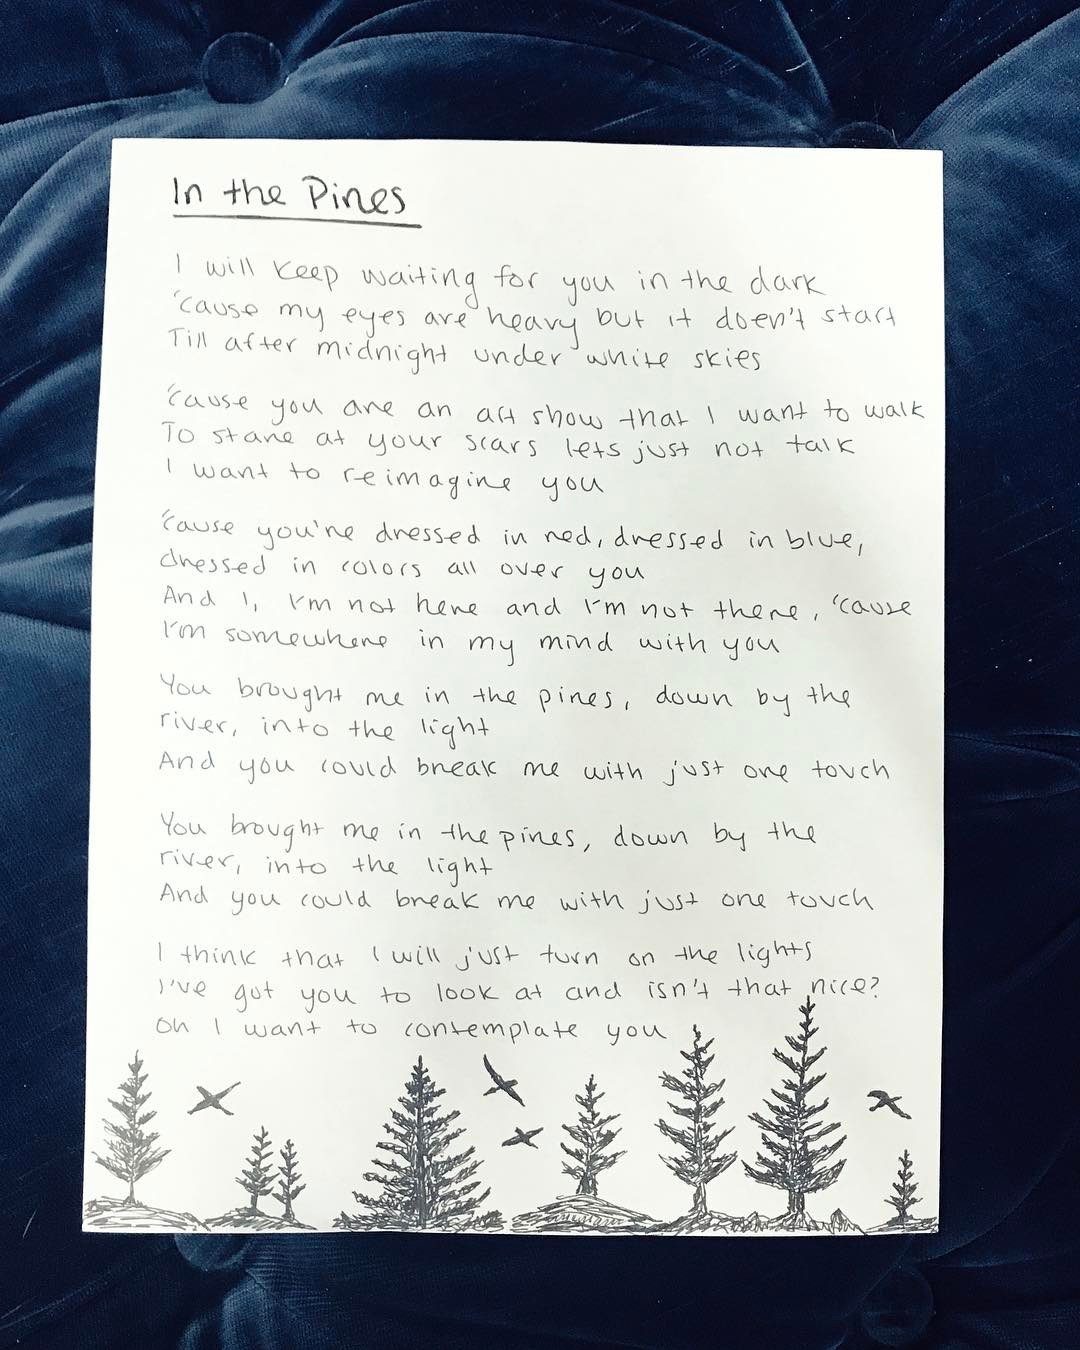 In the Pines
I will keep waiting for you in the dark
'cause my eyes are heavy but it doen't start
Till after midnight under white skies
'cause you are an art show that I want to walk
To stare at your scars lets just not talk
I want to reimagine you
'cause you're dressed in red, dressed in blue,
dressed in colors all over you
And I, I'm not here and I'm not there, 'cause
I'm somewhere in my mind with you
You brought me in the pines, down by the
river, into the light
And you could break me with just one touch
You brought me in the pines, down by the
river, into the light
And you could break me with just one touch
I think that I will just turn on the lights
I've got you to look at and isn't that nice?
Oh I want to contemplate you